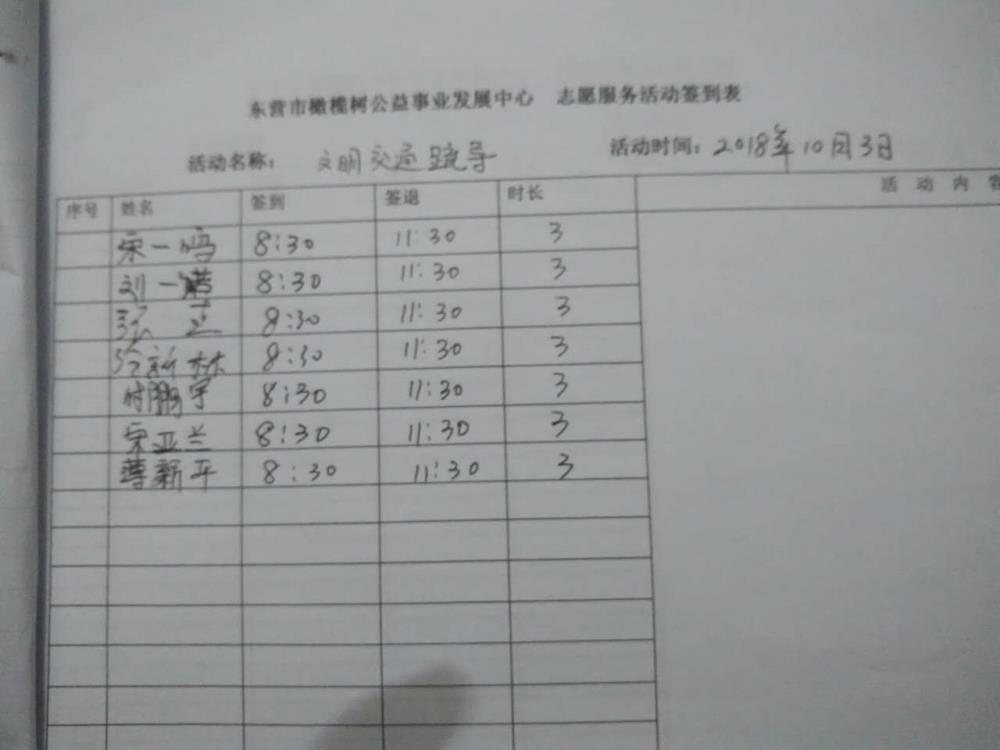 东营市橄榄树公益事业发展中心 志愿服务活动签到表
活动名称: 文明交通疏导 活动时间: 2018年10月3日
序号 姓名 签到 签退 时长 活动内容
宋一鸣 8:30 11:30 3
刘一 8:30 11:30 3
张 8:30 11:30 3
新林 8:30 11:30 3
付鹏宇 8:30 11:30 3
宋亚兰 8:30 11:30 3
薄新平 8:30 11:30 3